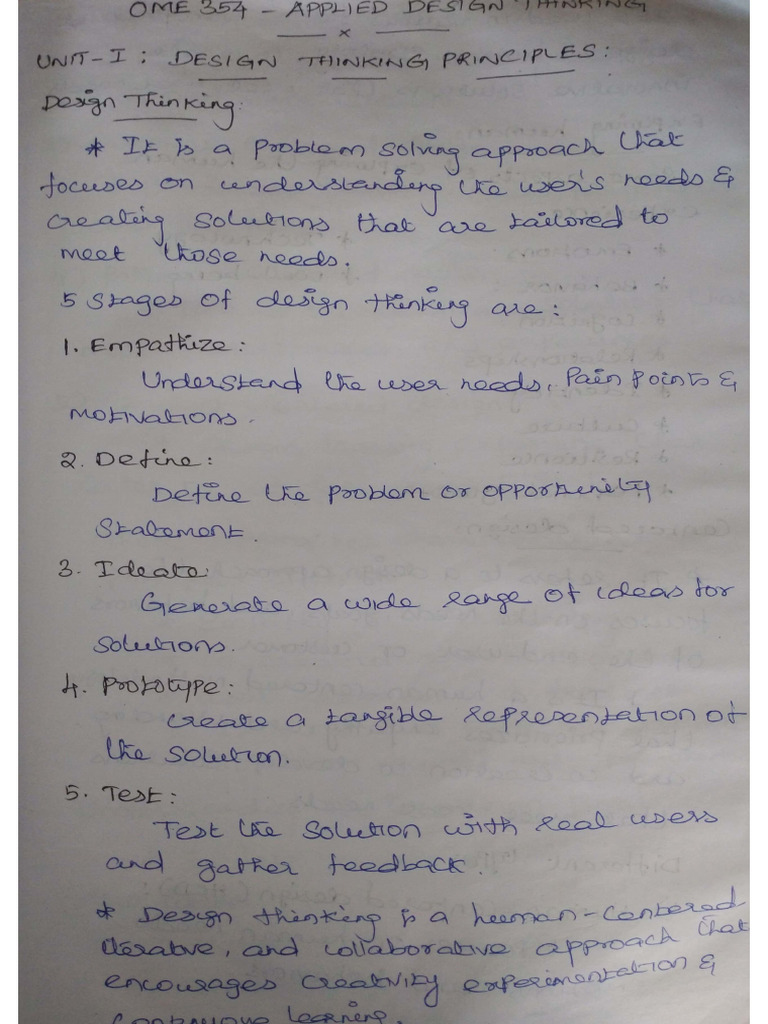 OME 354 - APPLIED DESIGN THINKING
x
UNIT-I : DESIGN THINKING PRINCIPLES:
Design Thinking:
* It is a problem solving approach that
focuses on understanding the user's needs &
creating solutions that are tailored to
meet those needs.
5 stages of design thinking are:
1. Empathize:
Understand the user needs, Pain Points &
motivations.
2. Define:
Define the problem or opportunity
statement.
3. Ideate:
Generate a wide range of ideas for
solutions.
4. Prototype:
Create a tangible representation of
the solution.
5. Test:
Test the solution with real users
and gather feedback.
* Design thinking is a human-centered
iterative, and collaborative approach that
encourages creativity experimentation &
continuous learning.